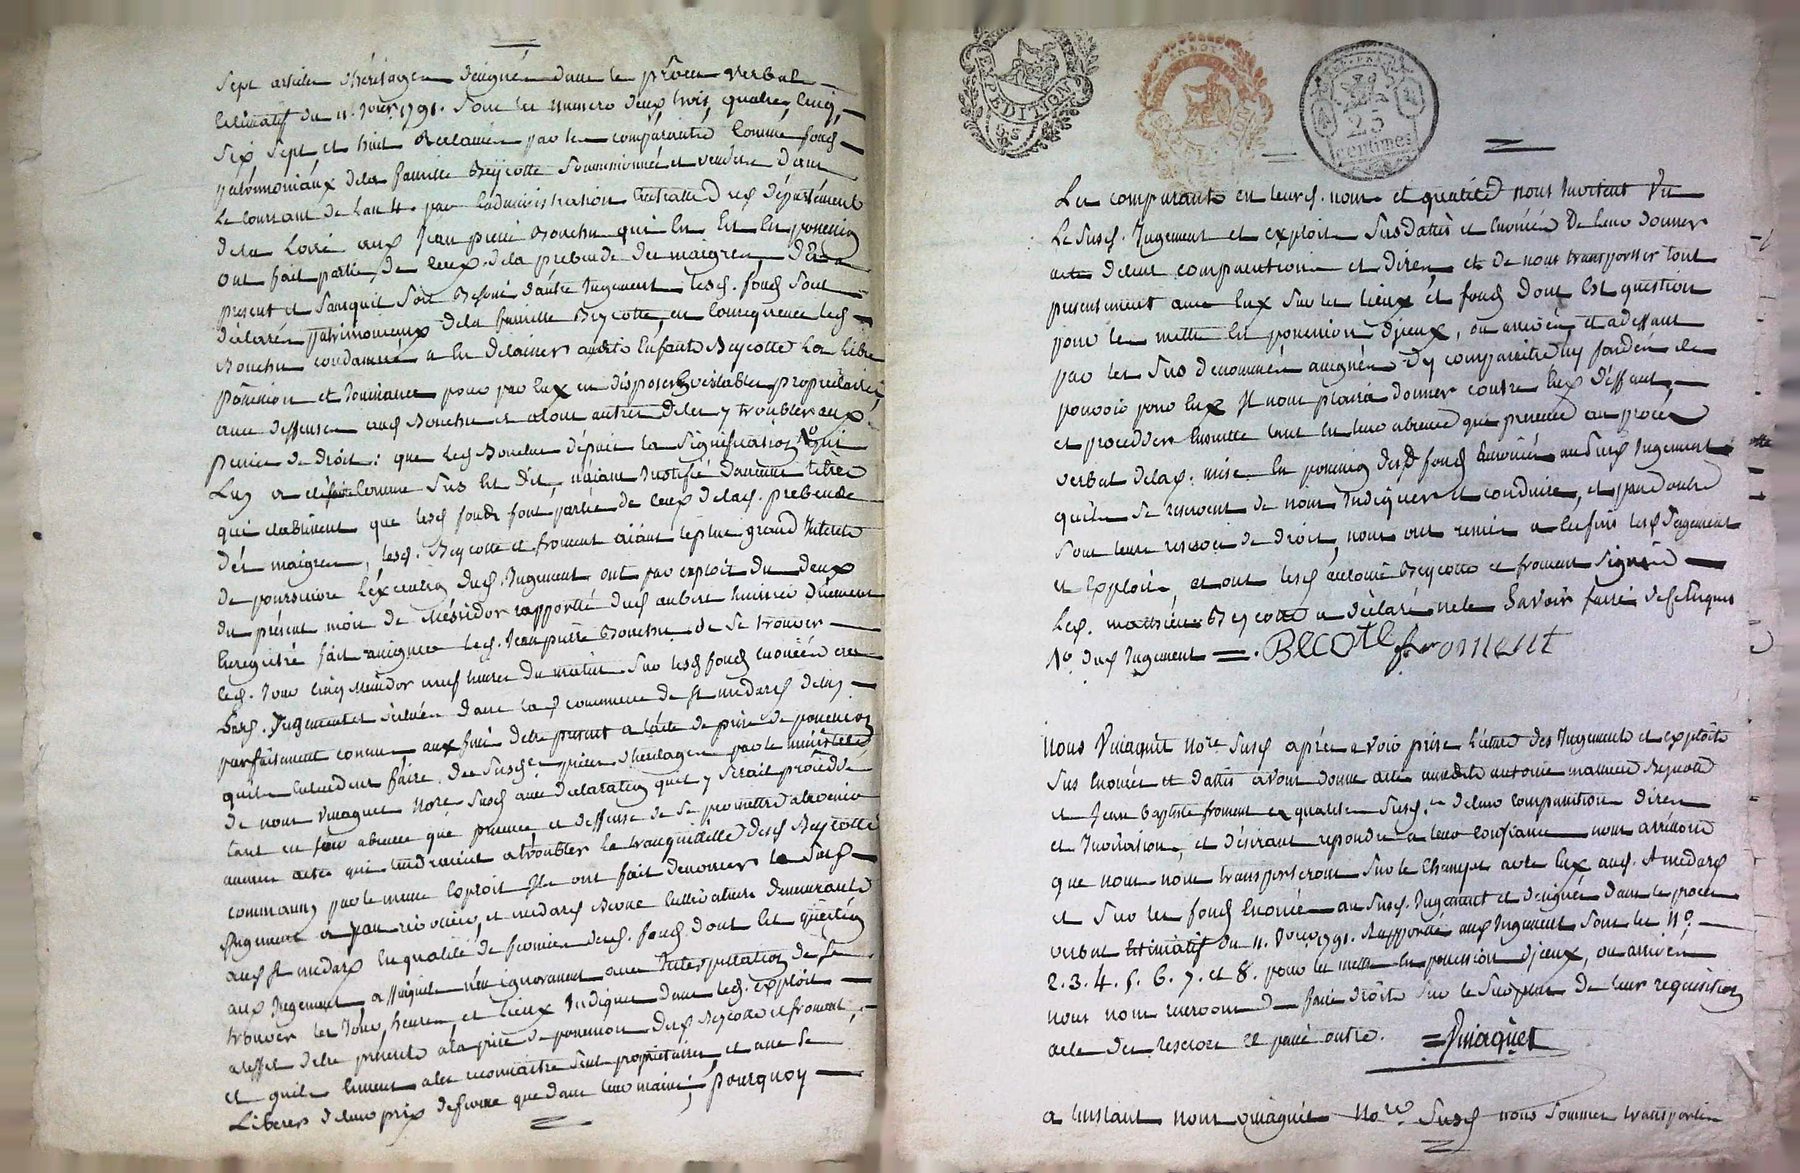 sept articles d'héritages désignés dans le procès verbal
estimatif du 11. 1791. sous les numero deux trois, quatre, cinq,
six sept et huit Reclamés par les comparants comme fonds
patrimoniaux de la famille Beycotte soumissionnés et vendus dans
le courrant de l'an 4. par l'administration Centralle du département
de la Loire aux Jean pierre Bouchu qui en est en possession
ont fait partie de ceux de la prebende des maigres,
present et sans qu'il soit Besoin d'autre Jugement lesd. fonds sont
déclarés patrimoniaux de la famille Beycotte, en consequence led.
Bouchu condamné a en delaisser auxdits Enfants Beycotte La Libre
possession et Jouissance pour par Eux en disposer en veritables propriétaires,
avec deffense aud. Bouchu et a tous autres de les y troubler aux
peines de droit: que led. Bouchu depuis la signification qui
Luy a été comme sus est dit, n'aiant Justifié d'aucuns titres
qui etablissent que lesd. fonds font partie de ceux de lad. prebende
des maigres, lesd. Beycotte et froment aiant le plus grand Interete
de poursuivre l'éxecution dud. Jugement ont par exploit du deux
du présent mois de Méssidor rapporté dud. aubert huissier dûement
Enregistré fait assigner led. Jean pierre Bouchu de se trouver
led. Jour cinq Messidor neuf heures du matin sur lesd. fonds enoncés
Jugement et situés dans la commune de St medard de luy
parfaitement connue aux fins d'etre present a l'acte de prise de possession
qu'ils entendent faire des susd. pieces d'heritages par le ministere
de nous Viniaguet Nore Susd. avec declaration qu'il y serait procédé
tant en son absence que presence, et deffense de se promettre a l'avenir
aucuns actes qui tendroient a troubler la tranquillitée desd. Beycotte
commun, par le meme Exploit Ils ont fait denoncer le Susd.
Jugement a medard cultivateur demeurant
aud. St medard En qualité de fermier desd. fonds dont est question
aux Jugement, a ce qu'il n'en ignorent avec Interpellation de se
trouver les Jour, heures, et Lieux Indiqués dans led. exploit
a l'effet d'etre présents a la prise de possession desd. Beycotte et froment,
et qu'ils eussent a les reconnaitre seul propriétaires, et a ne se
Liberer de leur prix de ferme que dans leur mains; pourquoy
EXPEDITION
25
centimes
Les comparants en leursd. noms et qualité nous Invitent Vu
Le Susd. Jugement et exploit Susdattés et Enoncés De leur donner
acte de leur comparution et dires, et de nous transporter tout
presentement avec Eux sur les lieux et fonds dont Est question
pour les mettre En possession d'yceux, ou arrivés, et a deffaut
par les Sus denommés assignés d'y comparaitre ny fondés de
pouvoir pour Eux Il nous plaira donner contre Eux deffaut,
et proceder Ensuitte tant en leur absence que presence au procès
verbal de lad. mise En possession desd. fonds Enoncés au Susd. Jugement
qu'ils se reservent de nous Indiquer et conduire, et sans autre
Sont leurs reserves de droit, nous ont remis a Ces fins lesd. Jugement
et Exploits, et ont lesd. antoine Beycotte et froment Signés
Led. mathieu Beycotte a déclaré ne le Savoir faire de ce Enquis
No. dud. Jugement = . BECOTE froment
Nous Viniaguet Nore Susd. après avoir prise Lecture des Jugements et exploits
Sus Enoncés et dattés avons donné acte auxdits antoine mathieu Beycotte
et Jean baptiste froment es qualités Susd. de leur comparution dires
et Invitation, et désirant repondre a leur confiance nous arrettons
que nous nous transporterons sur le Champ avec Eux aud. St medard
et sur les fonds Enoncés au Susd. Jugement et designés dans le procès
verbal Estimatif du 11. 1791. Rapportés aux Jugement sous les No.
2. 3. 4. 5. 6. 7. et 8. pour les mettre En possession d'yceux, ou arrivés
nous nous reservons de faire droit sur le Surplus de leur requisition
acte des reserves et passé outre. = Viniaguet
a l'instant nous Viniaguet Nore Susd. nous sommes transportés